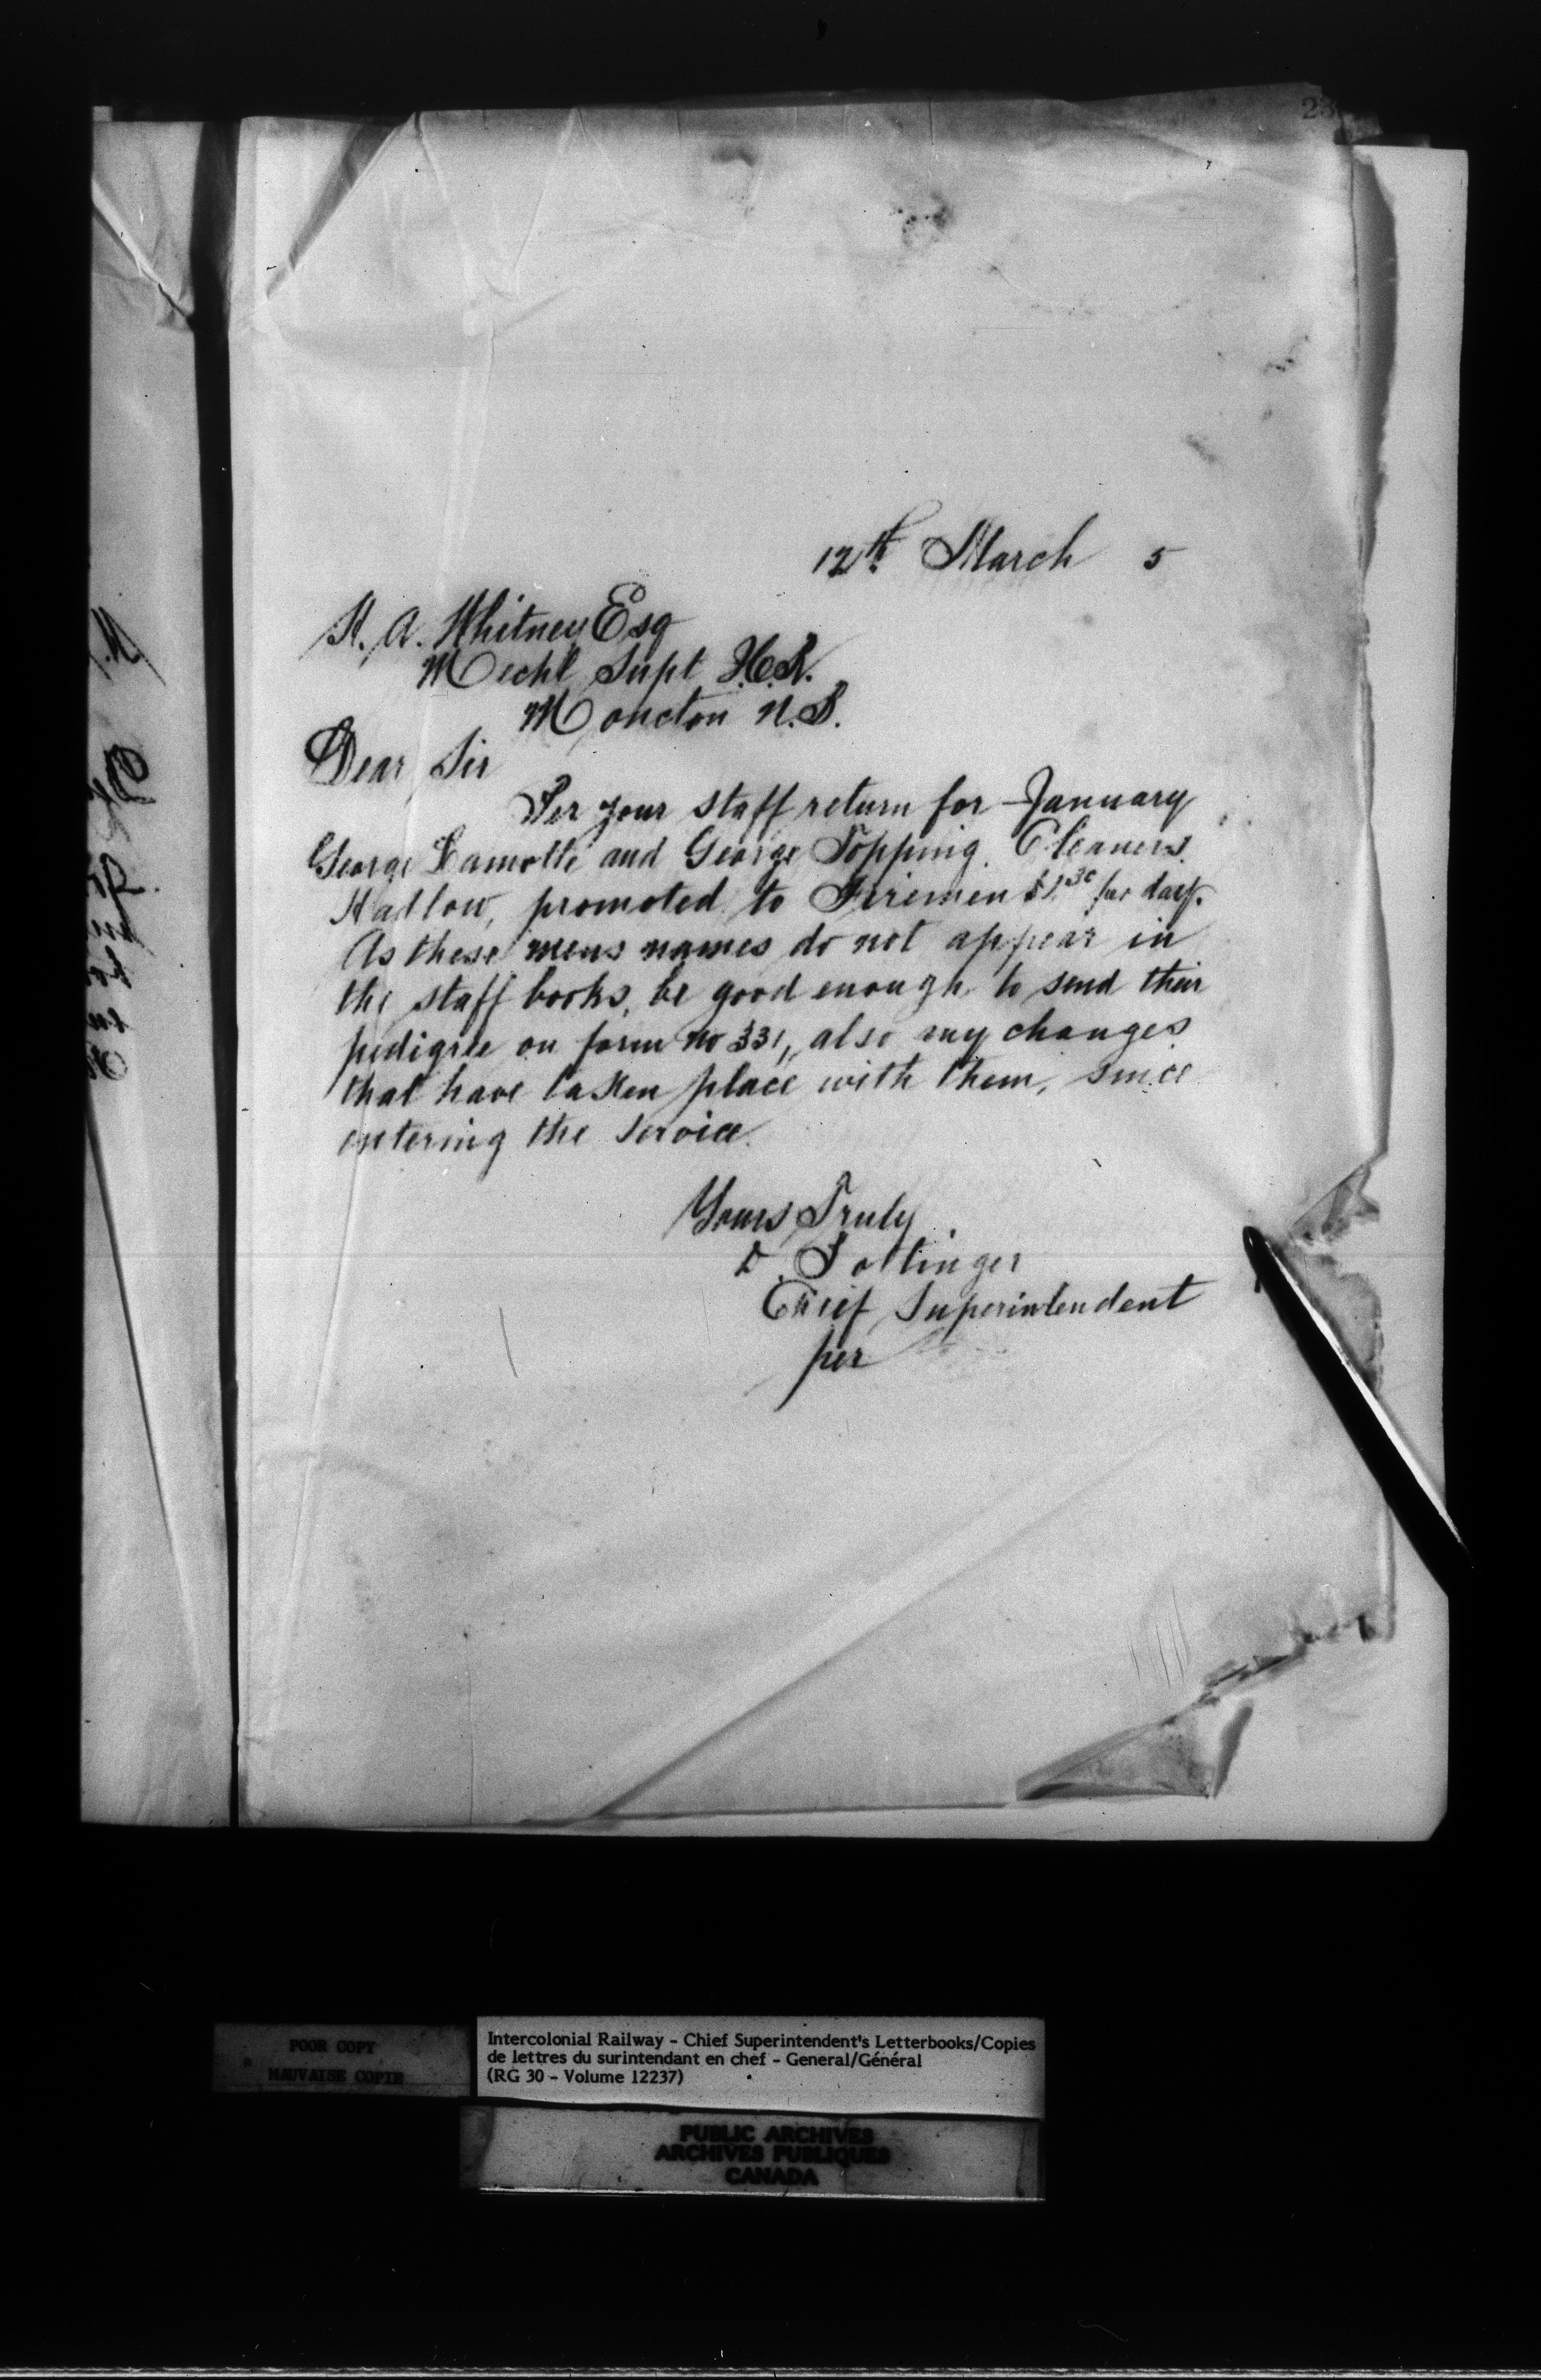 12th. March 5
H. A. Whitney Esq
Mechl Supt I.C.R.
Moncton N.B.
Dear Sir
Per your staff return for January
George Lamotte and George Topping. Cleaners.
Hadlow, promoted to Firemen $1.30 per day.
As these mens names do not appear in
the staff books, be good enough to send their
pedigree on form no 331, also any changes
that have taken place with them, since
entering the service.
Yours Truly
D. Pottinger
Chief Superintendent
per
POOR COPY
MAUVAISE COPIE
Intercolonial Railway - Chief Superintendent's Letterbooks/Copies
de lettres du surintendant en chef - General/Général
(RG 30 - Volume 12237)
PUBLIC ARCHIVES
ARCHIVES PUBLIQUES
CANADA